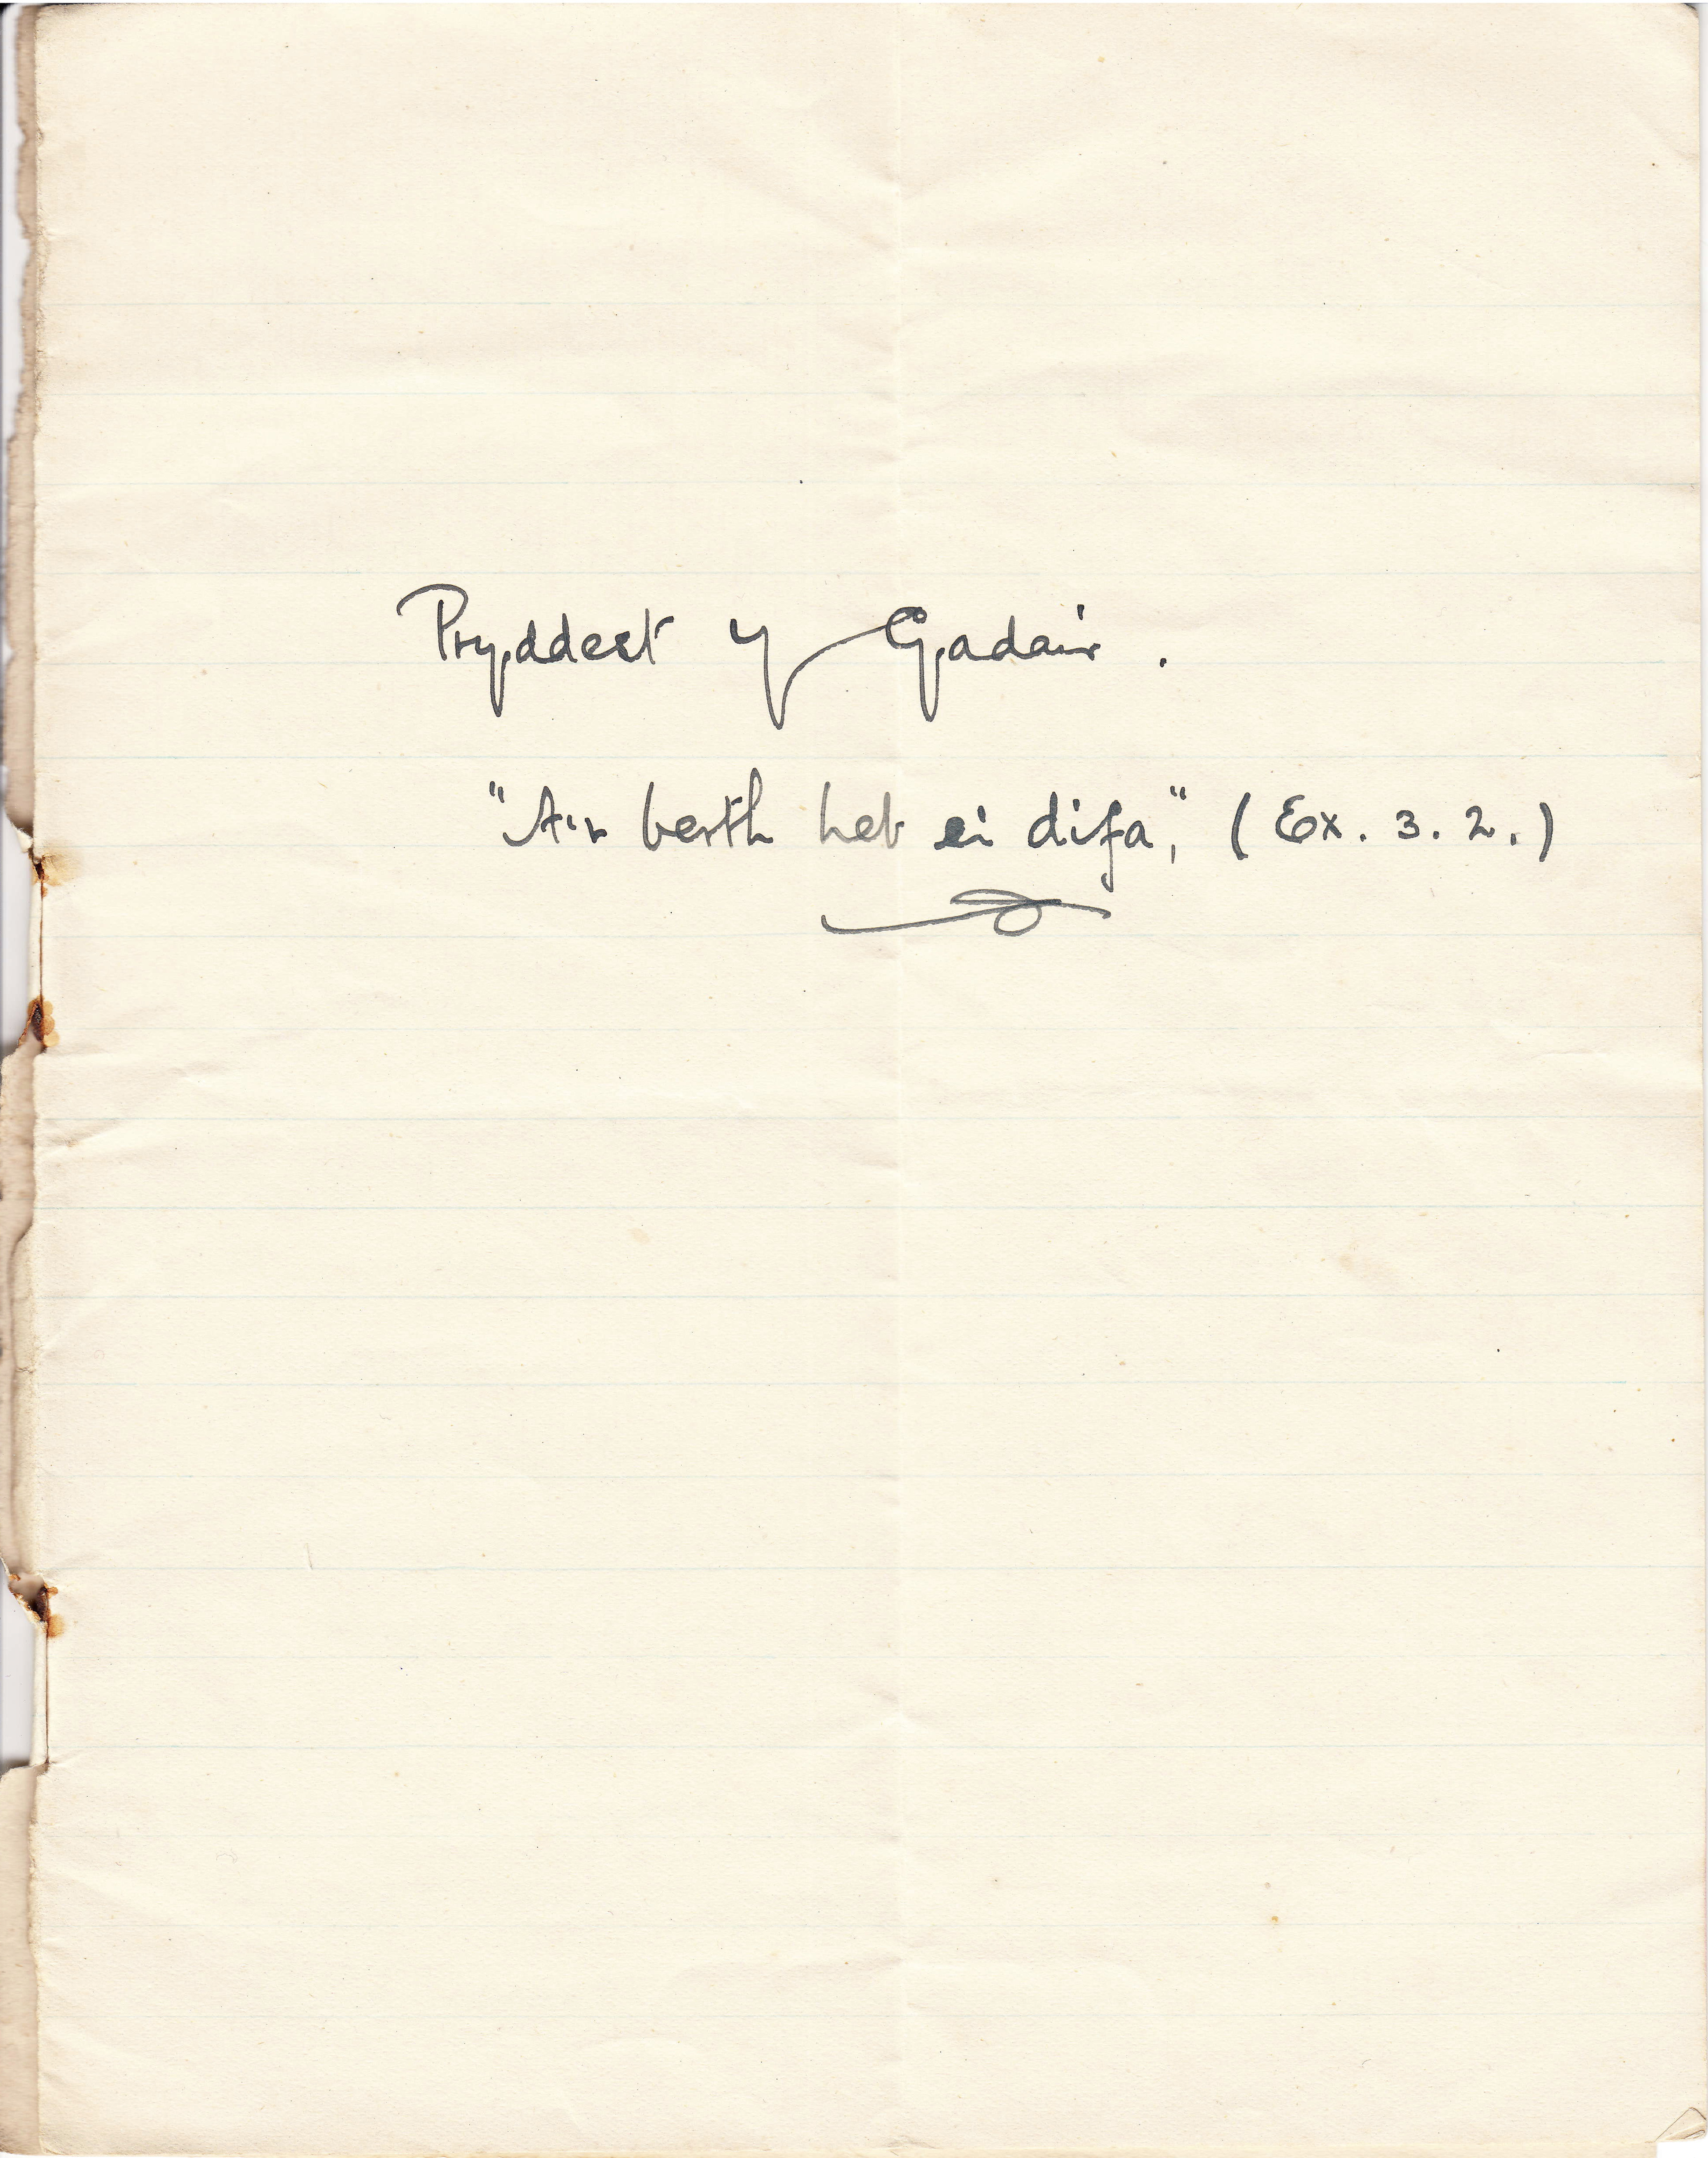 Pryddest y Gadair.
"A'r berth heb ei difa," (Ex. 3. 2.)